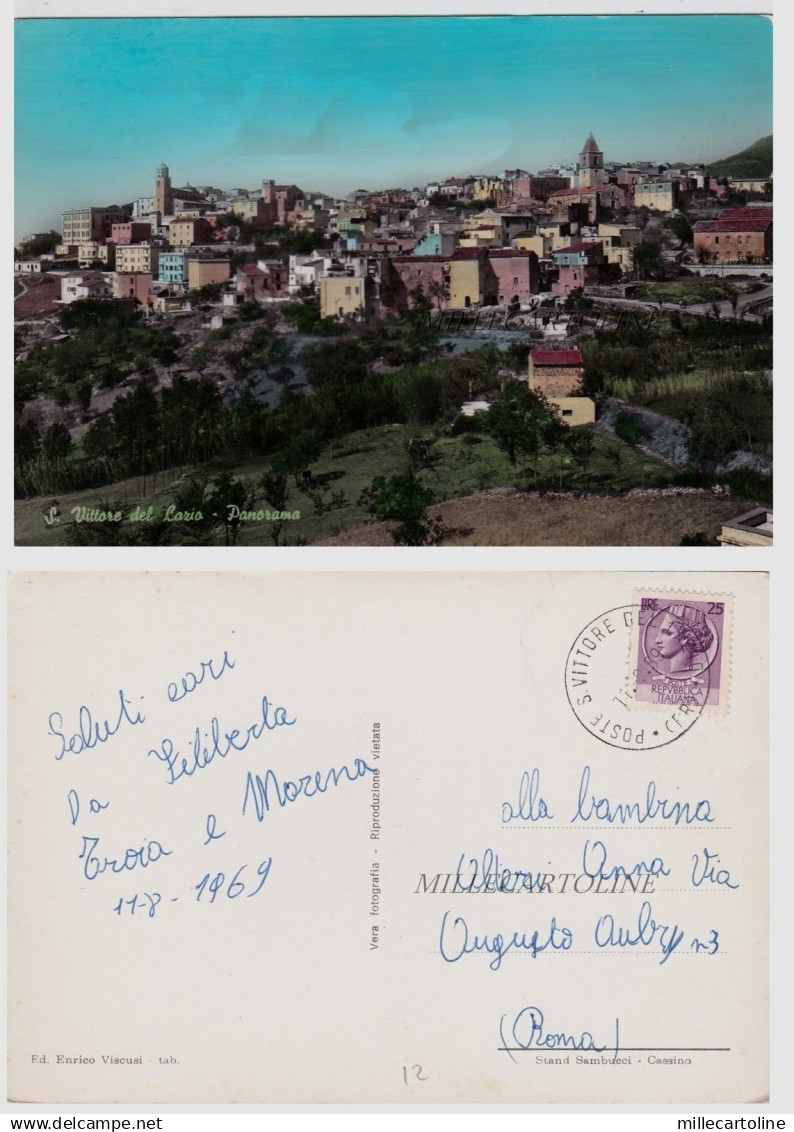 MILLECARTOLINE
S. Vittore del Lazio - Panorama
LIRE 25
POSTE
REPVBBLICA
ITALIANA
POSTE S. VITTORE DEL (FR) *
Saluti cari
Da Filiberta
Troia e Morena
11-8-1969
Vera fotografia - Riproduzione vietata
alla bambina
Altieri Anna Via
MILLECARTOLINE
Augusto n 3
(Roma)
Ed. Enrico Viscusi - tab.
12
Stand Sambucci - Cassino
delcampe.net
millecartoline